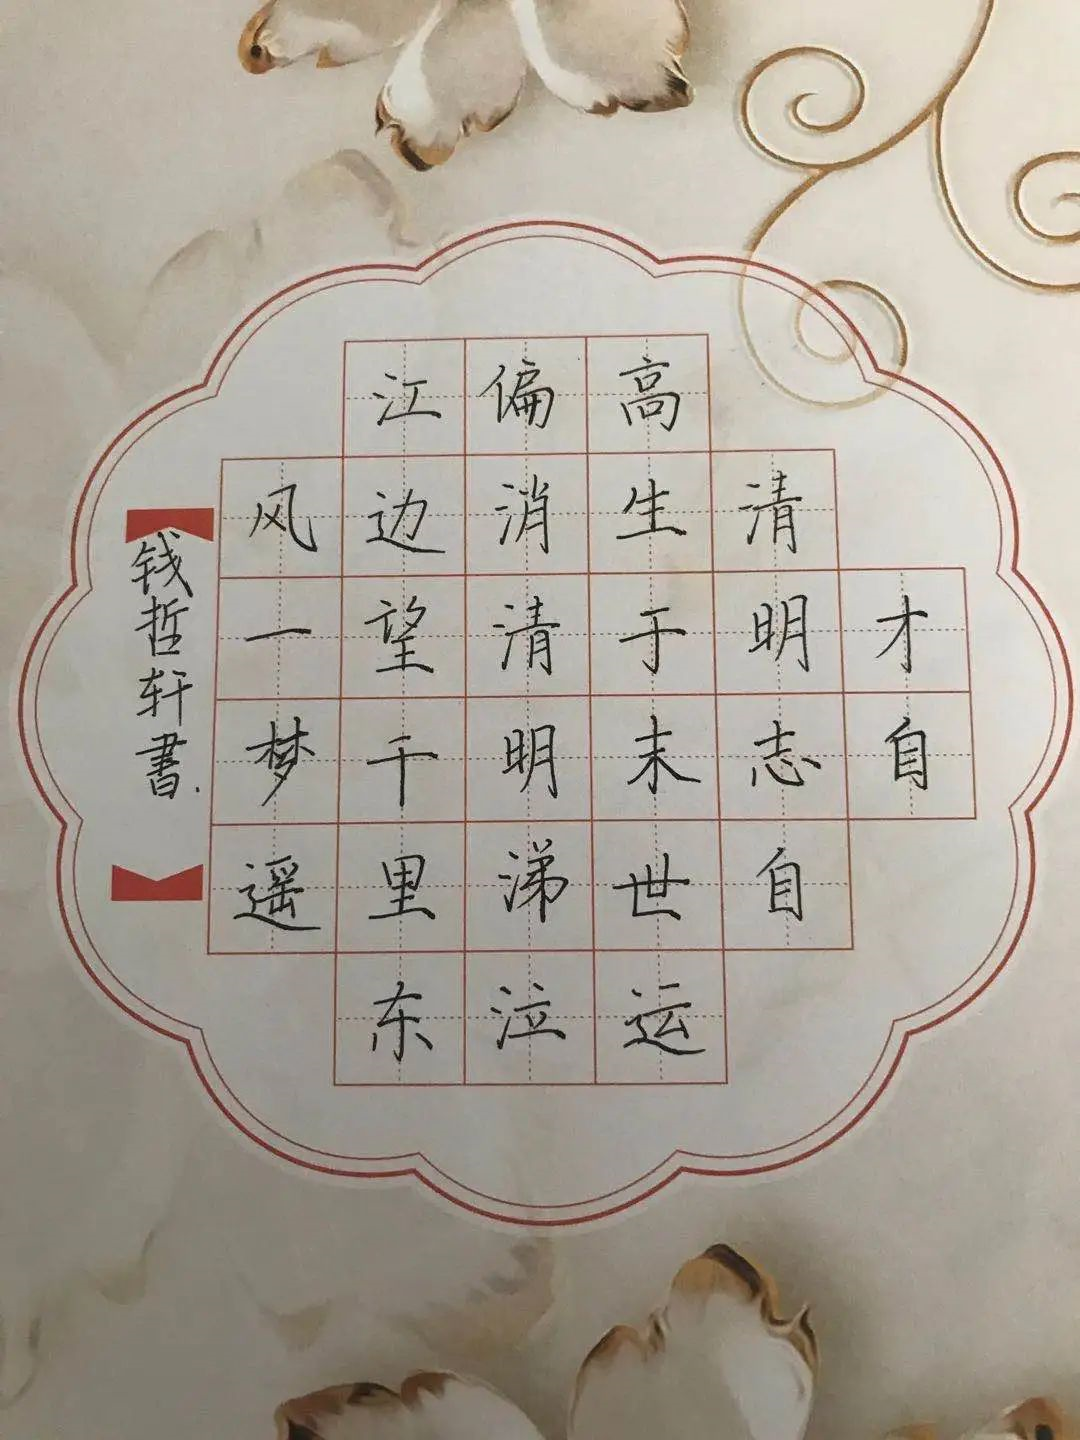 才自
清明志自
高生于末世运
偏消清明涕泣
江边望千里东
风一梦遥
钱哲轩書